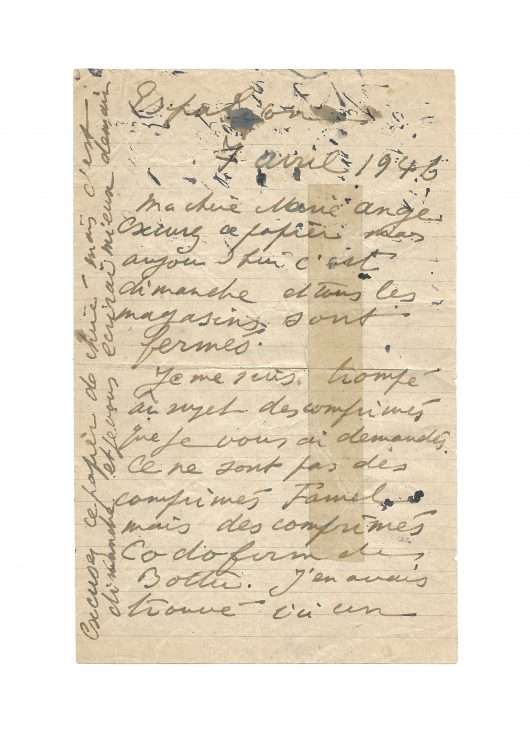 Espalion
7 avril 1946
Ma chère Marie ange
Excusez ce papier mais
aujourd'hui c'est
dimanche et tous les
magasins sont
fermés.
Je me suis trompé
au sujet des comprimés
que je vous ai demandés.
Ce ne sont pas des
comprimés Famel
mais des comprimés
Codoforme de
Bottu. J'en avais
trouvé ici un
Excusez ce papier de mais c'est
dimanche et je vous écrirai mieux demain